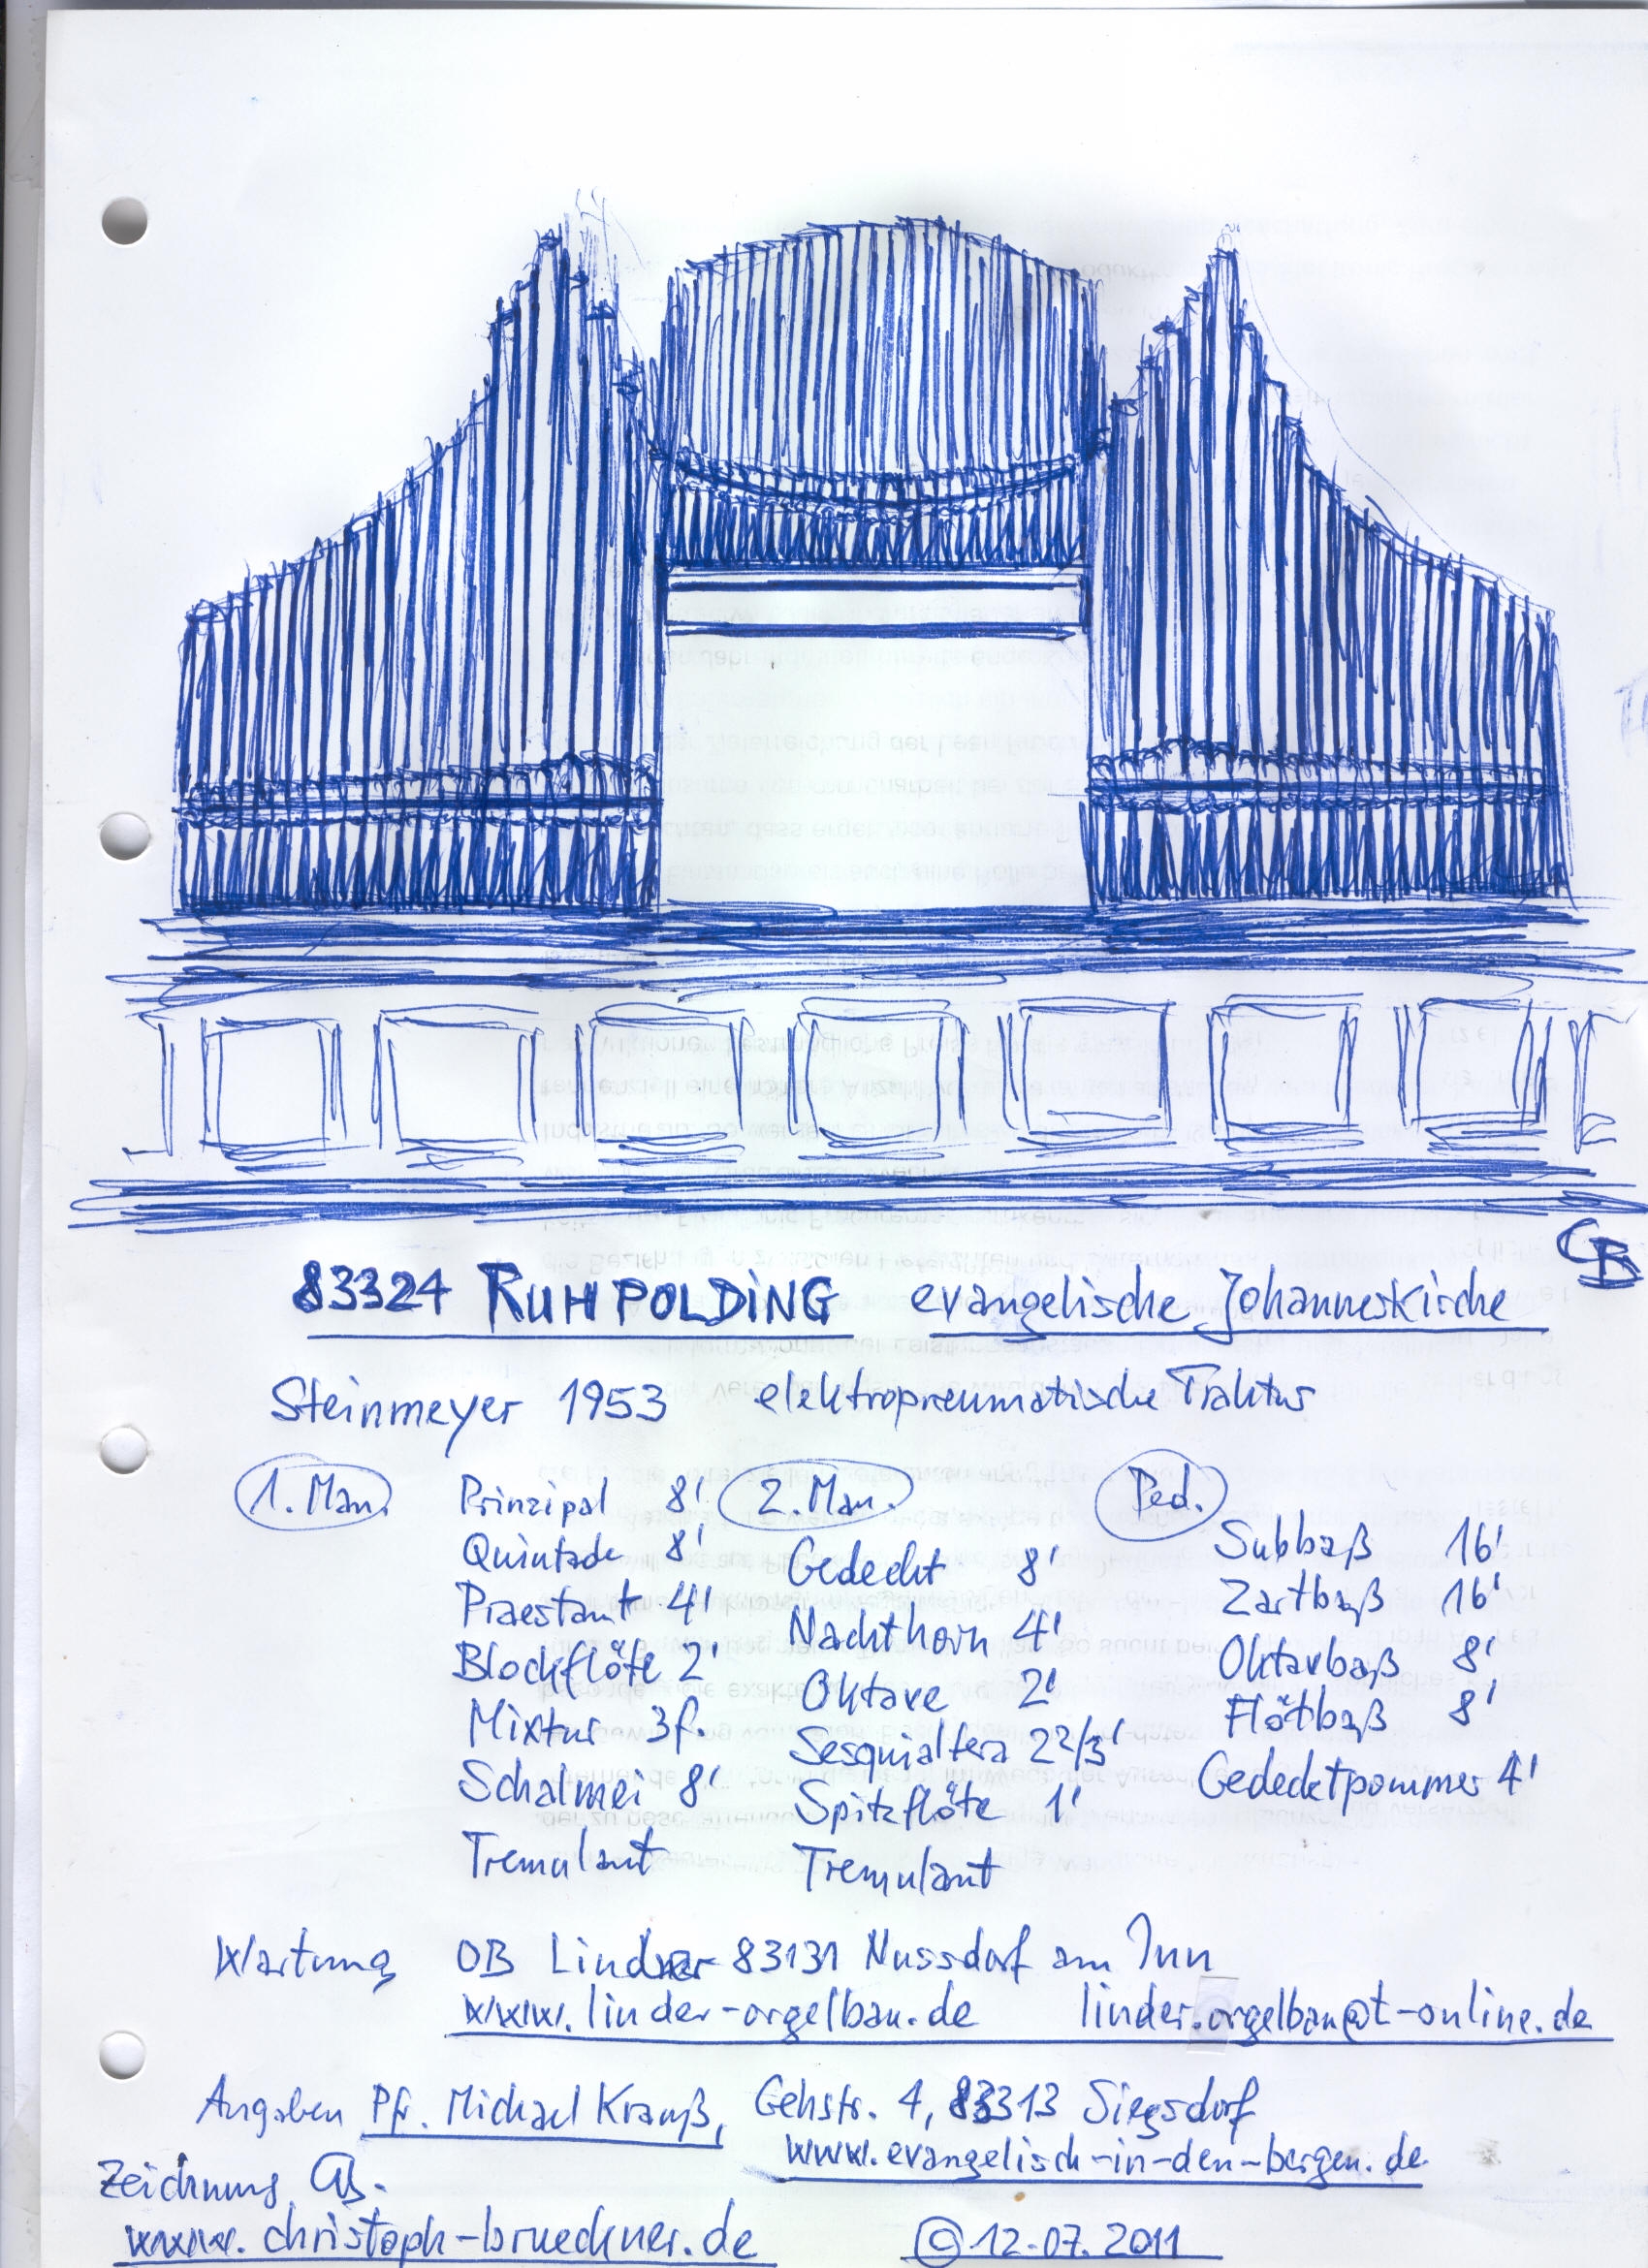 CB
83324 RUHPOLDING evangelische Johanneskirche
Steinmeyer 1953 elektropneumatische Traktur
1. Man.
Prinzipal 8'
Quintade 8'
Praestant 4'
Blockflöte 2'
Mixtur 3f.
Schalmei 8'
Tremulant
2. Man.
Gedeckt 8'
Nachthorn 4'
Oktave 2'
Sesquialtera 2 2/3'
Spitzflöte 1'
Tremulant
Ped.
Subbaß 16'
Zartbaß 16'
Oktavbaß 8'
Flötbaß 8'
Gedecktpommer 4'
Wartung OB Linder 83131 Nussdorf am Inn
www.linder-orgelbau.de linder.orgelbau@t-online.de
Angaben Pfr. Michael Krauß, Gehstr. 4, 83313 Siegsdorf
www.evangelisch-in-den-bergen.de
Zeichnung CB.
www.christoph-brueckner.de © 12.07.2011